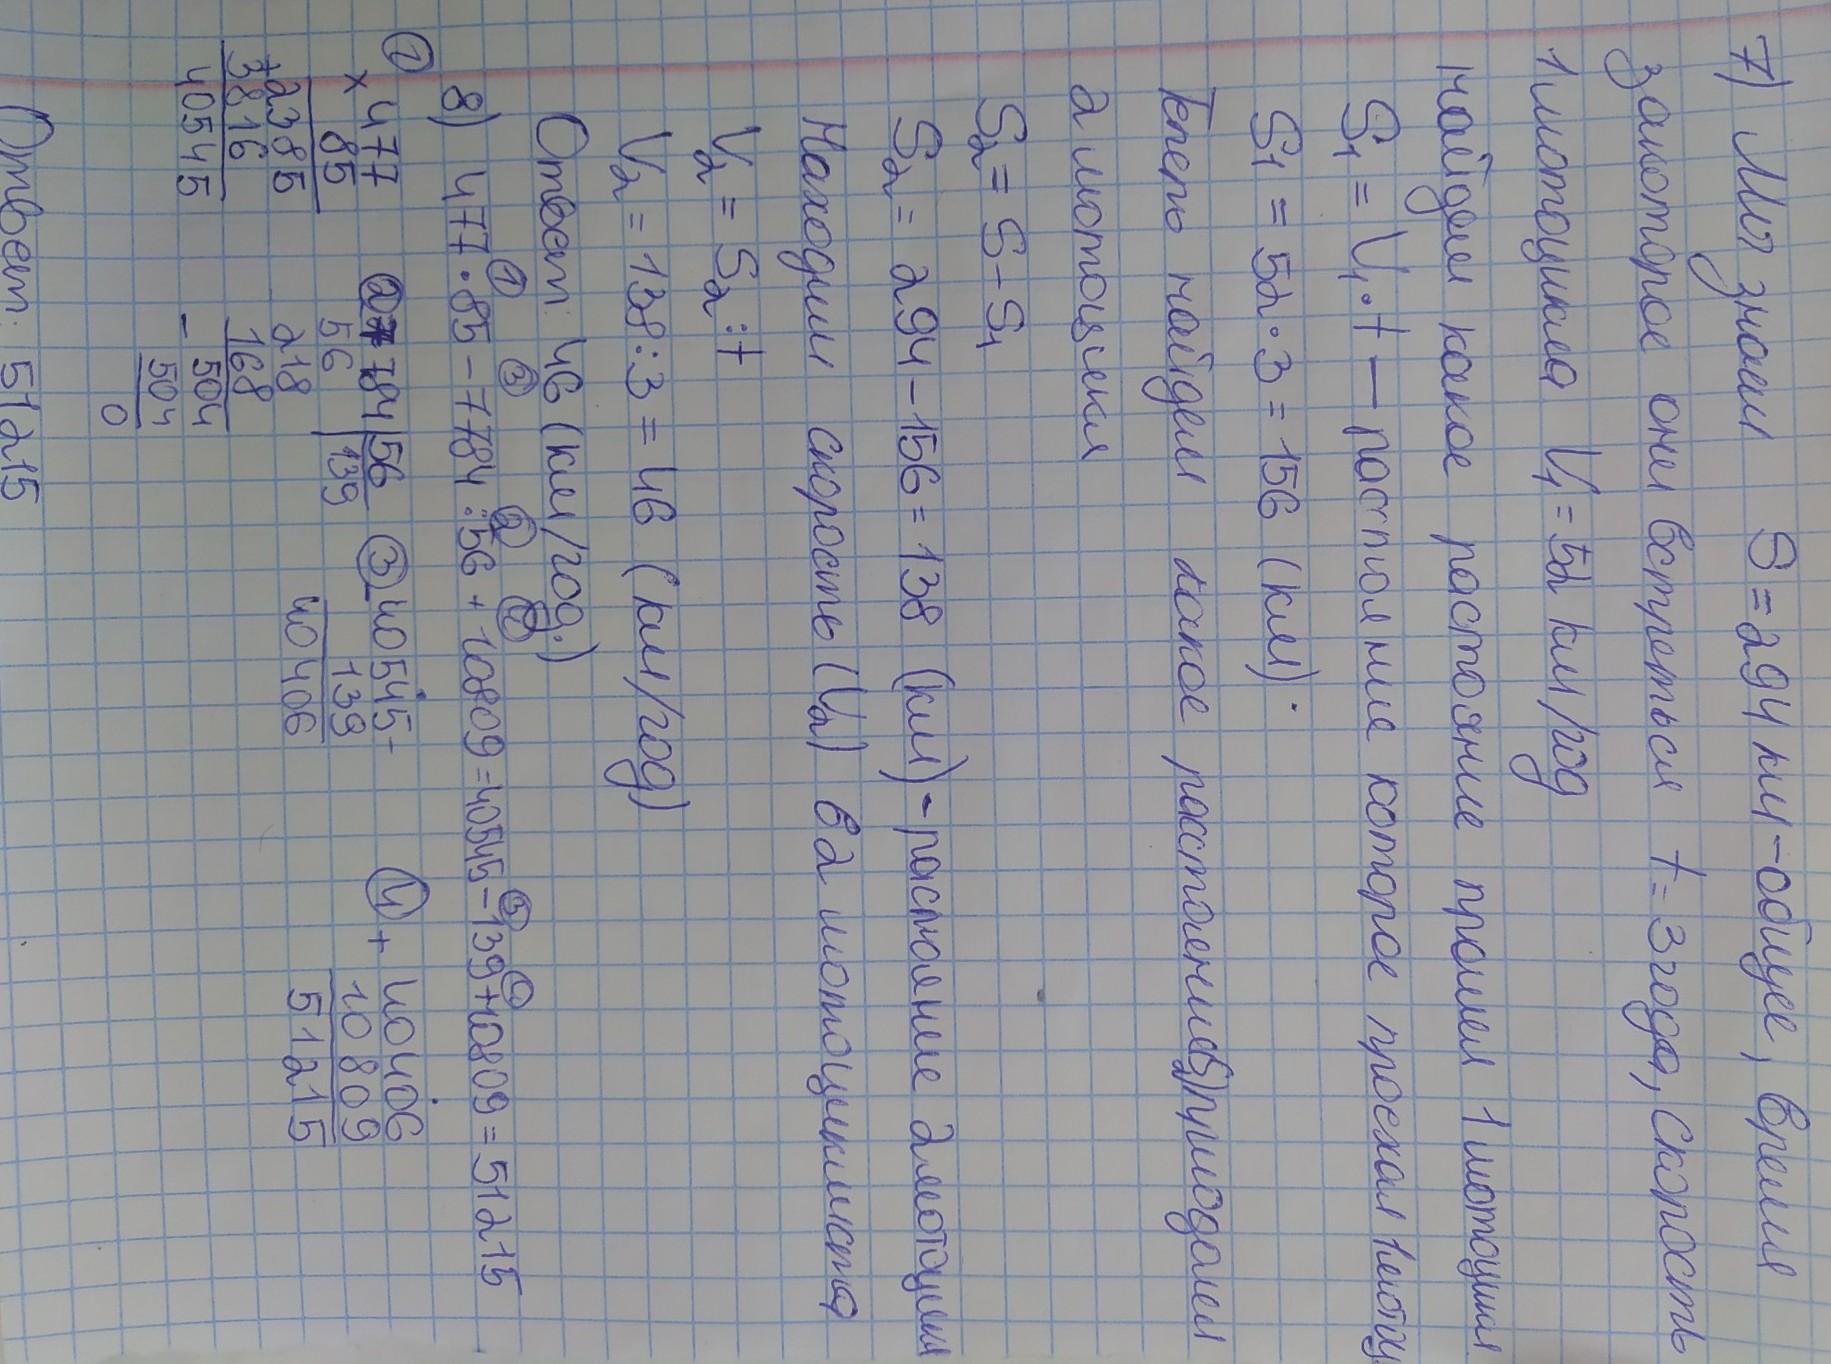 7) Мы знаем S = 294 км - общее, время
за которое они встреться t = 3 года, скорость
1 мотоцикла V₁ = 52 км/год
найдем какое растояние проехал 1 мотоцикл
S₁ = V₁ · t — растояние которое проехал 1 мотоц
S₁ = 52 · 3 = 156 (км).
Теперь найдем какое растояние(S₂) преодолел
2 мотоцикл
S₂ = S - S₁
S₂ = 294 - 156 = 138 (км) - растояние 2 мотоцикл
Находим скорость (V₂) в 2 мотоциклиста
V₂ = S₂ : t
V₂ = 138 : 3 = 46 (км/год)
Ответ: 46 (км/год.)
8) 477 · 85 - 7784 : 56 + 10809 = 40545 - 139 + 10809 = 51215
① × 477
85
+ 2385
3816
40545
② 7784 | 56
56 | 139
218
168
- 504
504
0
③ - 40545
139
40406
④ + 40406
10809
51215
Ответ: 51215